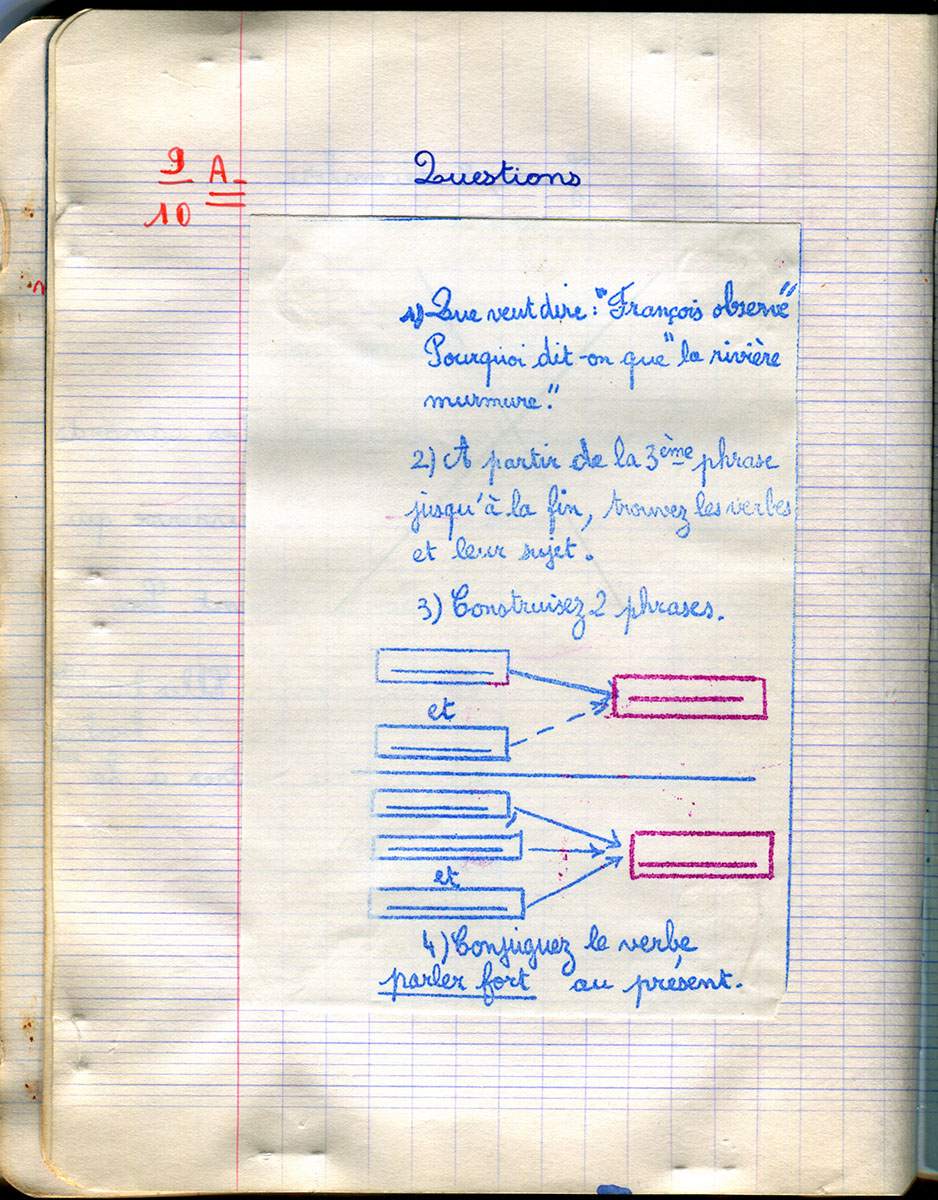 9 A
10
Questions
1) Que veut dire : "François observe"
Pourquoi dit-on que "la rivière
murmure."
2) A partir de la 3ème phrase
jusqu'à la fin, trouvez les verbes
et leur sujet.
3) Construisez 2 phrases.
et
et
4) Conjuguez le verbe
parler fort au présent.